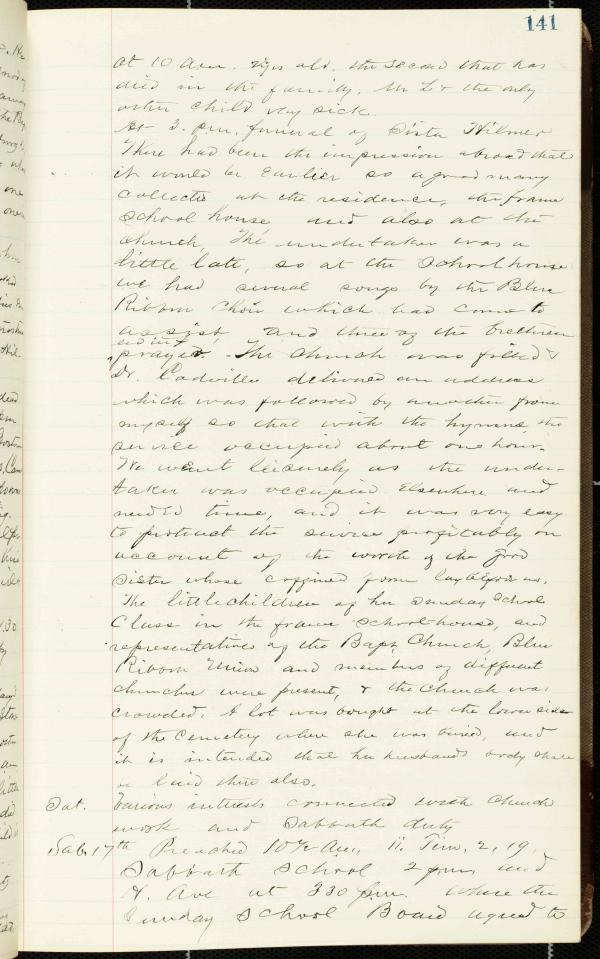 141
at 10 a.m. 2 yrs old, the second that has
died in the family. Mr L & the only
other child very sick.
At 3. p.m. funeral of Sister Hilmer
There had been the impression abroad that
it would be earlier so a good many
collected at the residence, the frame
school house and also at the
church, The undertaker was a
little late, so at the School house
we had several songs by the Blue
Ribbon Choir which had come to
assist, and three of the brethren
prayed. The church was filled &
Dr. delivered an address
which was followed by another from
myself so that with the hymns the
service occupied about one hour.
We went leisurely as the under-
taker was occupied elsewhere and
needed time, and it was very easy
to protract the service profitably on
account of the worth of the good
sister whose coffined form lay before us.
The little children of her Sunday School
Class in the frame schoolhouse, and
representatives of the Bapt. Church, Blue
Ribbon Union and members of different
churches were present, & the church was
crowded. A lot was bought at the lower side
of the Cemetery where she was buried, and
it is intended that her husband's body shall
be laid there also.
Sat. Various interests connected with church
work and Sabbath duty
Sab. 17th Preached 10½ a.m. II. Tim. 2, 19.
Sabbath School 2 p.m. and
H. Ave at 3 30 p.m. where the
Sunday School Board agreed to